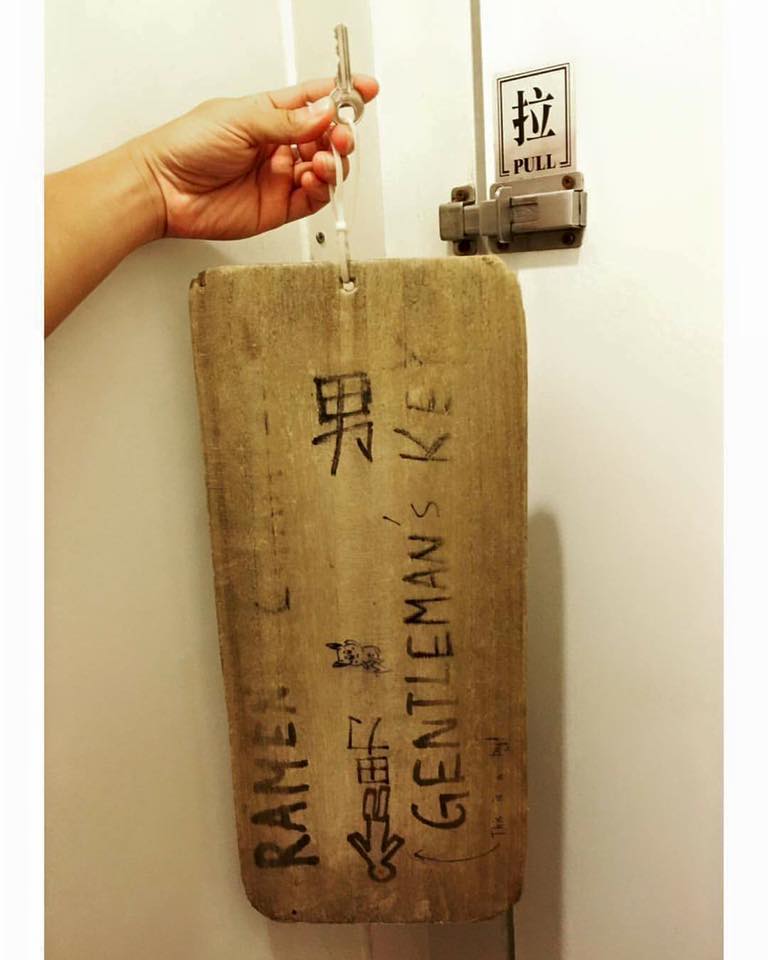 拉
PULL
男
RAMEN
GENTLEMAN'S KEY